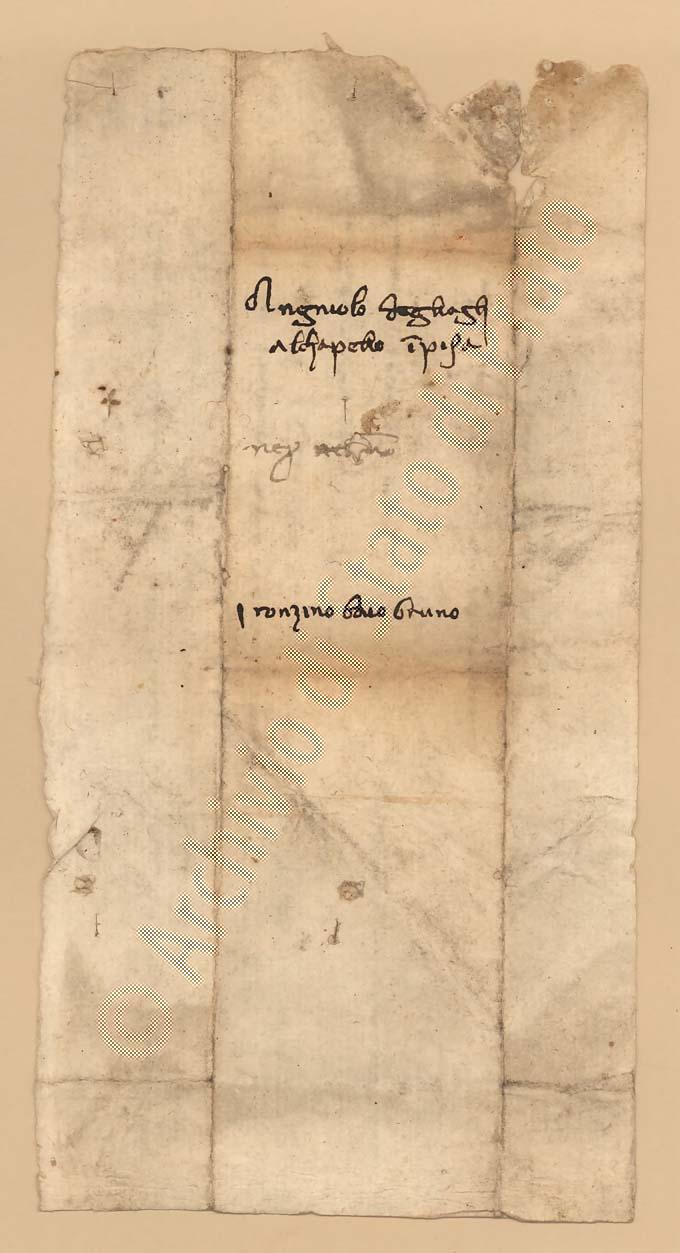 Angniolo degli agli
al chapello in pisa
1 ronzino baio bruno
© Archivio di Stato di Prato